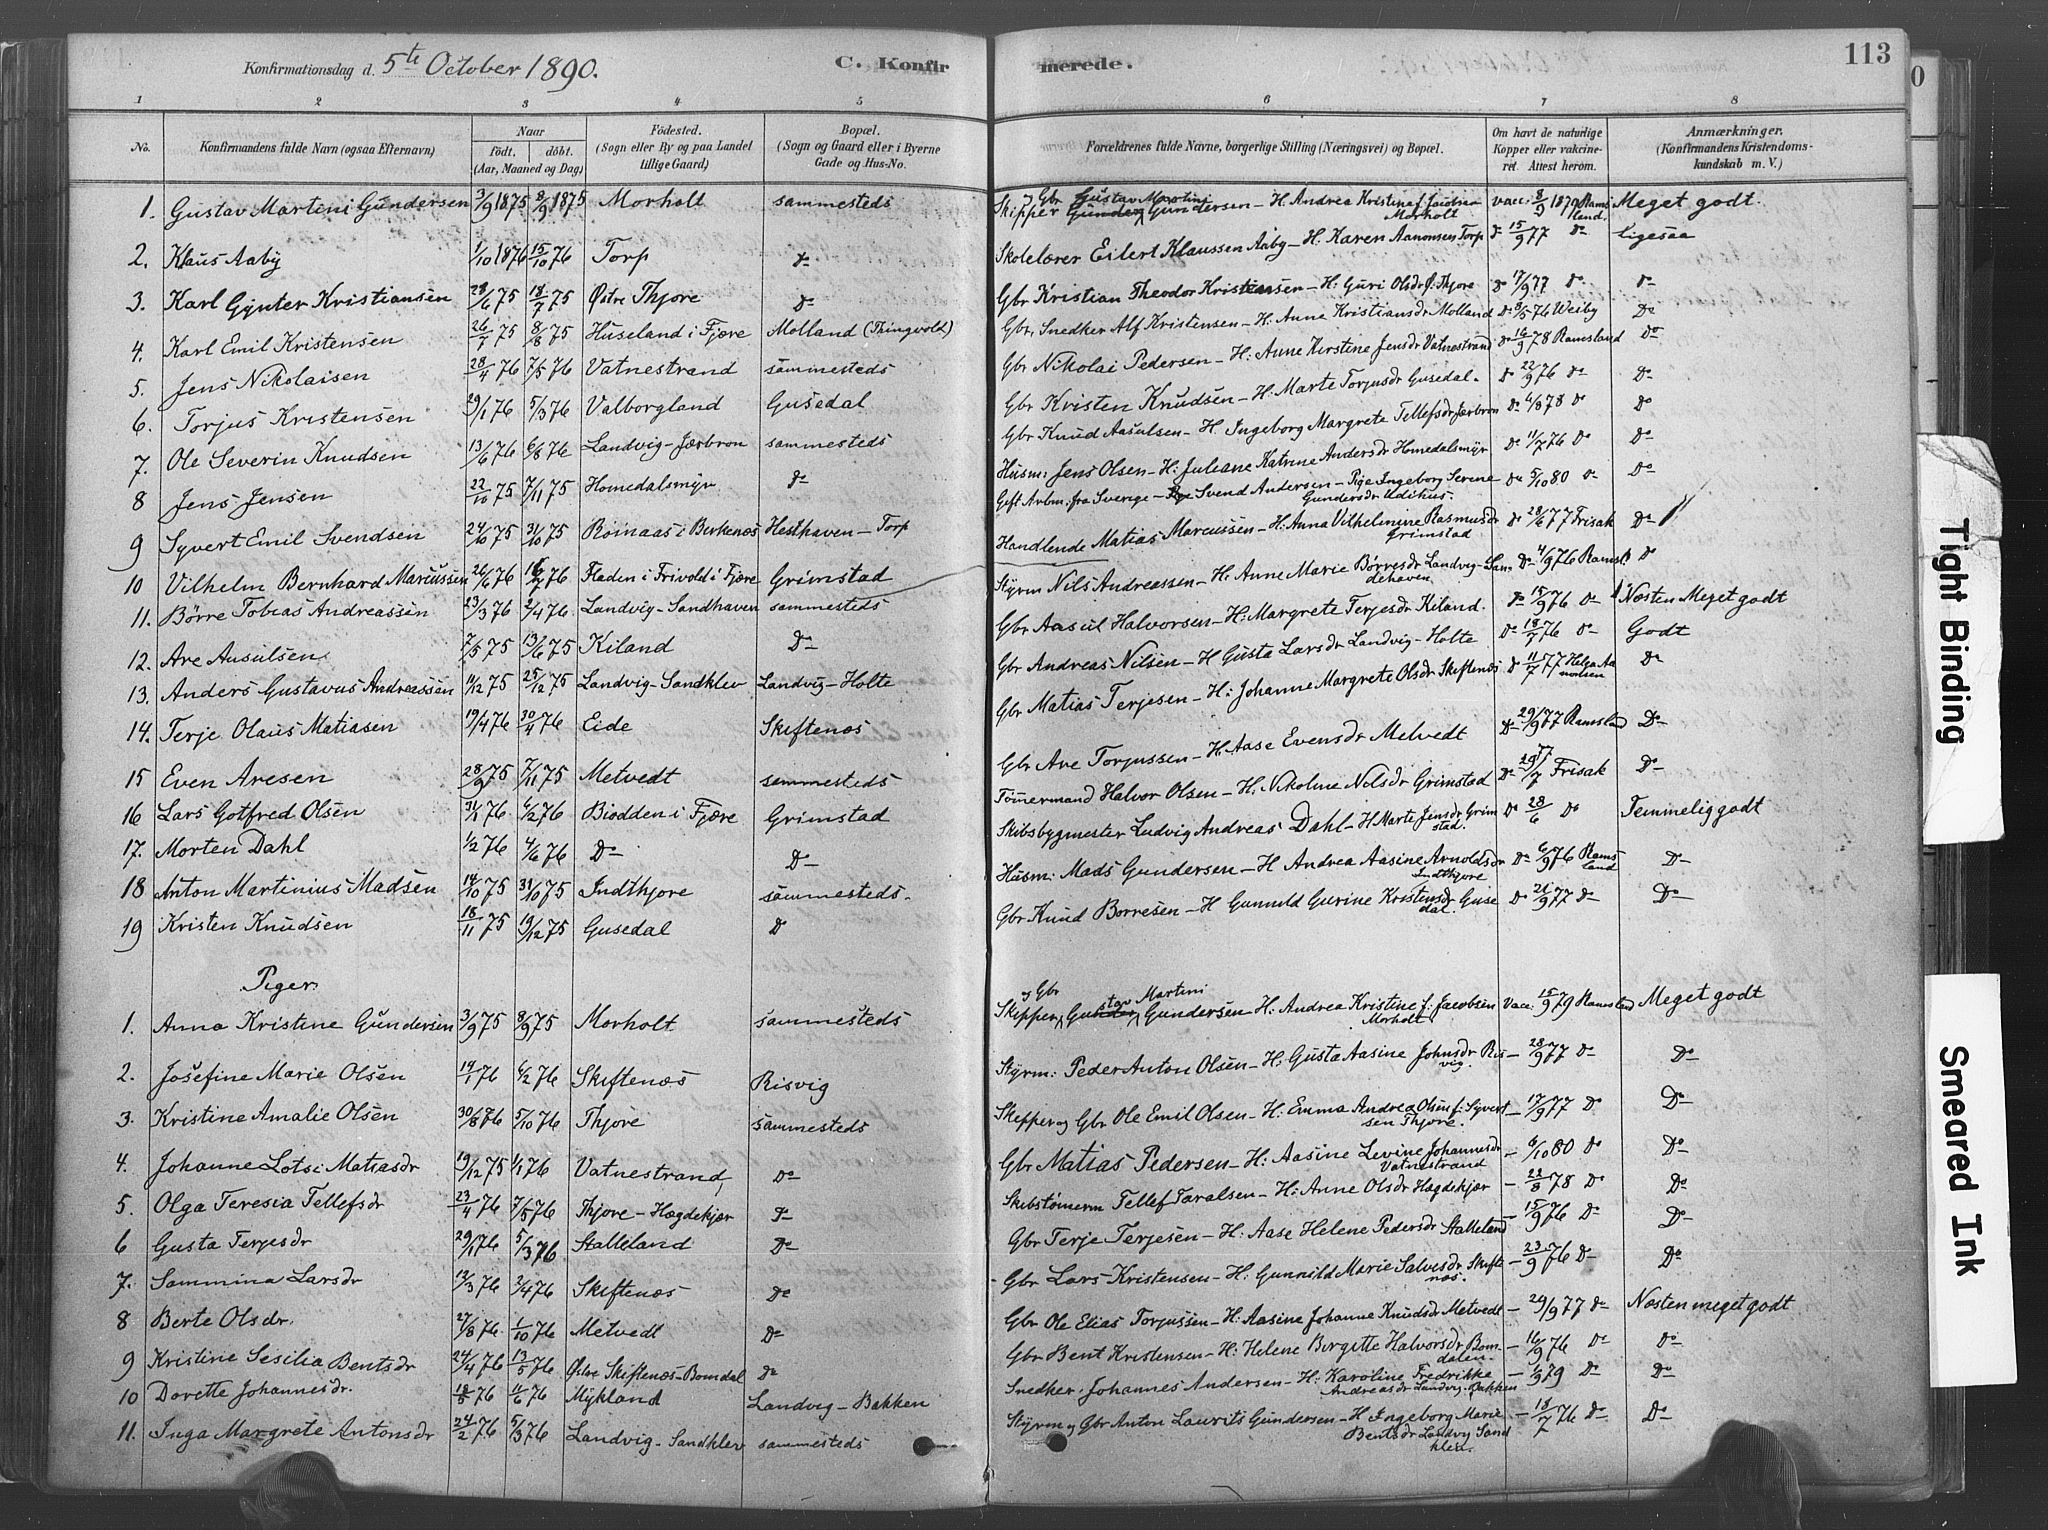 Konfirmationsdag d. 5te October 1890.
C. Konfirmerede.
113
1 2 3 4 5 6 7 8
No.
Konfirmandens fulde Navn (ogsaa Efternavn)
Naar
födt, döbt.
(Aar, Maaned og Dag)
Födested.
(Sogn eller By og paa Landet tillige Gaard)
Bopæl.
(Sogn og Gaard eller i Byerne Gade og Hus-No.
Forældrenes fulde Navne, borgerlige Stilling (Næringsvei) og Bopæl.
Om havt de naturlige Kopper eller vakcineret. Attest herom.
Anmærkninger.
(Konfirmandens Kristendomskundskab m. V.)
1. Gustav Martini Gundersen 3/9 1875 8/9 1875 Morholt sammesteds Skipper og Gbr Gustav Martini Gundersen – H. Andrea Kristine f. Jacobsen Morholt vac. 8/9 1879 Ramsland. Meget godt.
2. Klaus Aaby 1/10 1876 15/10 76 Torp do Skolelærer Eilert Klaussen Aaby – H. Karen Aanonsen Torp do 15/9 77 do ligesaa
3. Karl Gynter Kristiansen 28/6 75 18/7 75 Østre Thjore Do Gbr Kristian Theodor Kristiansen – H: Guri Olsdr Ø. Thjore do 17/9 77 do do
4. Karl Emil Kristensen 26/7 75 8/8 75 Huseland i Fjære Molland (Thingvold) Gbr, Snedker Alf Kristensen – H: Anne Kristiansdr Molland Do 8/5 76 Weiby Do
5. Jens Nikolaisen 28/4 76 7/5 76 Vatnestrand sammesteds Gbr Nikolai Pedersen – H: Anne Kirstine Jensdr Vatnestrand do 16/9 78 Ramsland Do
6. Torjus Kristensen 29/1 76 5/3 76 Valborgland Gusedal Gbr Kristen Knudsen – H: Marte Torjusdr Gusedal. do 22/9 76 do Do
7. Ole Severin Knudsen 13/6 76 6/8 76 Landvig-Jærbron sammesteds Gbr Knud Aasulsen – H. Ingeborg Margrete Tellefsdr Jærbron Do 4/8 78 Do Do
8 Jens Jensen 22/10 75 7/11 75 Homedalsmyr do Husm: Jens Olsen – H: Juliane Katrine Andersdr Homedalsmyr Do 11/7 76 Do Do
9 Syvert Emil Svendsen 24/10 75 31/10 75 Roinaas i Birkenæs Hesthaven – Torp Gift Arbm. fra Sverige – Svend Andersen – Pige Ingeborg Serine Gundersdr Udihus. Do 5/10 80 do Do
10 Vilhelm Bernhard Marcussen 26/6 76 16/7 76 Fladen i Frivold i Fjære Grimstad Handlende Matias Marcussen – H: Anna Vilhelmine Rasmusdr Grimstad Do 28/6 77 Frisak Do
11. Børre Tobias Andreassen 23/3 76 2/4 76 Landvig-Sandhaven sammesteds Styrm Nils Andreassen – H. Anne Marie Børresdr Landvig-Sandehaven Do 4/9 76 Ramsl. Do
12. Are Ausulsen 7/5 75 13/6 75 Kiland Do Gbr Aasul Halvorsen – H: Margrete Terjesdr Kiland. Do 15/9 76 Do Næsten Meget godt
13. Anders Gustavus Andreassen 14/12 75 25/12 75 Landvig-Sandklev Landvig-Holte Gbr Andreas Nilsen – H Gusta Larsdr Landvig-Holte Do 18/7 76 do Godt
14. Terje Olaus Matiasen 19/4 76 30/4 76 Eide Skiftenæs Gbr Matias Terjesen – H: Johanne Margrete Olsdr Skiftenæs Do 11/7 77 Helge Aanonsen Do
15 Even Aresen 28/9 75 7/11 75 Metvedt sammesteds Gbr Are Torjussen – H. Aase Evensdr Melvedt Do 29/9 77 Ramsland Do
16 Lars Gotfred Olsen 31/1 76 4/2 76 Biodden i Fjære Grimstad Tømmermand Halvor Olsen – H: Nikoline Nilsdr Grimstad Do 29/7 77 Frisak Do
17. Morten Dahl 1/2 76 4/6 76 Do Do Skibsbygmester Ludvig Andreas Dahl – H Marte Jensdr Grimstad. Do 28/6 Do Temmelig godt
18 Anton Martinius Madsen 14/10 75 31/10 75 Indthjore sammesteds. Husm: Mads Gundersen – H Andrea Aasine Arnoldsdr Indthjore Do 6/9 76 Ramsland Do
19 Kristen Knudsen 18/11 75 19/12 75 Gusedal D Gbr Knud Borresen – H Gunnild Gurine Kristensdr Gusedal. Do 21/9 77 Do Do
Piger
1. Anna Kristine Gundersen 3/9 75 8/9 75 Morholt sammesteds Skipper og Gbr Gustav Martini Gundersen – H: Andrea Kristine f. Jacobsen Morholt Vacc: 15/9 79 Ramsland Meget godt
2. Josefine Marie Olsen 19/1 76 4/2 76 Skiftenæs Risvig Styrm: Peder Anton Olsen – H: Gusta Aasine Johnsdr Risvig. – 28/9 77 Do Do
3. Kristine Amalie Olsen 30/8 76 5/10 76 Thjore sammesteds Skipper og Gbr Ole Emil Olsen – H: Emma Andrea Olsen f. Syvertsen Thjore. – 17/9 77 Do Do
4. Johanne Lotsi Matiasdr 19/12 75 1/1 76 Vatnestrand, Do Gbr Matias Pedersen – H: Aasine Levine Johannesdr Vatnestrand – 6/10 80 Do Do
5. Olga Teresia Tellefsdr 23/4 76 7/5 76 Thjore-Hægdekjær D– Skibstømerm Tellef Taralsen – H: Anne Olsdr Hægdekjær – 22/8 78 Do Do
6 Gusta Terjesdr 29/1 76 5/3 76 Stalleland Do Gbr Terje Terjesen – H: Aase Helene Pedersdr Stalleland – 15/9 76 Do Do
7. Sammina Larsdr 12/3 76 2/4 76 Skiftenæs Do Gbr Lars Kristensen – H: Gunnild Marie Salvesdr Skiftenæs. – 23/9 76 Do Do
8 Berte Olsdr. 27/8 76 1/10 76 Metvedt Do Gbr Ole Elias Torjussen – H: Aasine Johanne Knudsdr Metvedt – 29/9 77 Do Næsten meget godt
9 Kristine Sesilia Bentsdr 24/4 76 13/5 76 Østre Skiftenæs-Bomdal do Gbr Bent Kristensen – H: Helene Birgitte Halvorsdr Bomdalen. – 16/9 76 Do Do
10 Dorette Johannesdr. 18/5 76 11/6 76 Mykland Landvig – Bakken Snedker Johannes Andersen – H: Karoline Fredrikke Andreasdr Landvig-Bakken – 1/9 79 Do Do
11. Inga Margrete Antonsdr 24/2 76 5/3 76 Landvig-Sandklev sammesteds Styrm og Gbr Anton Laurits Gundersen – H Ingeborg Marie Bentsdr Landvig Sandklev. – 18/7 76 Do Do
Tight Binding
Smeared Ink